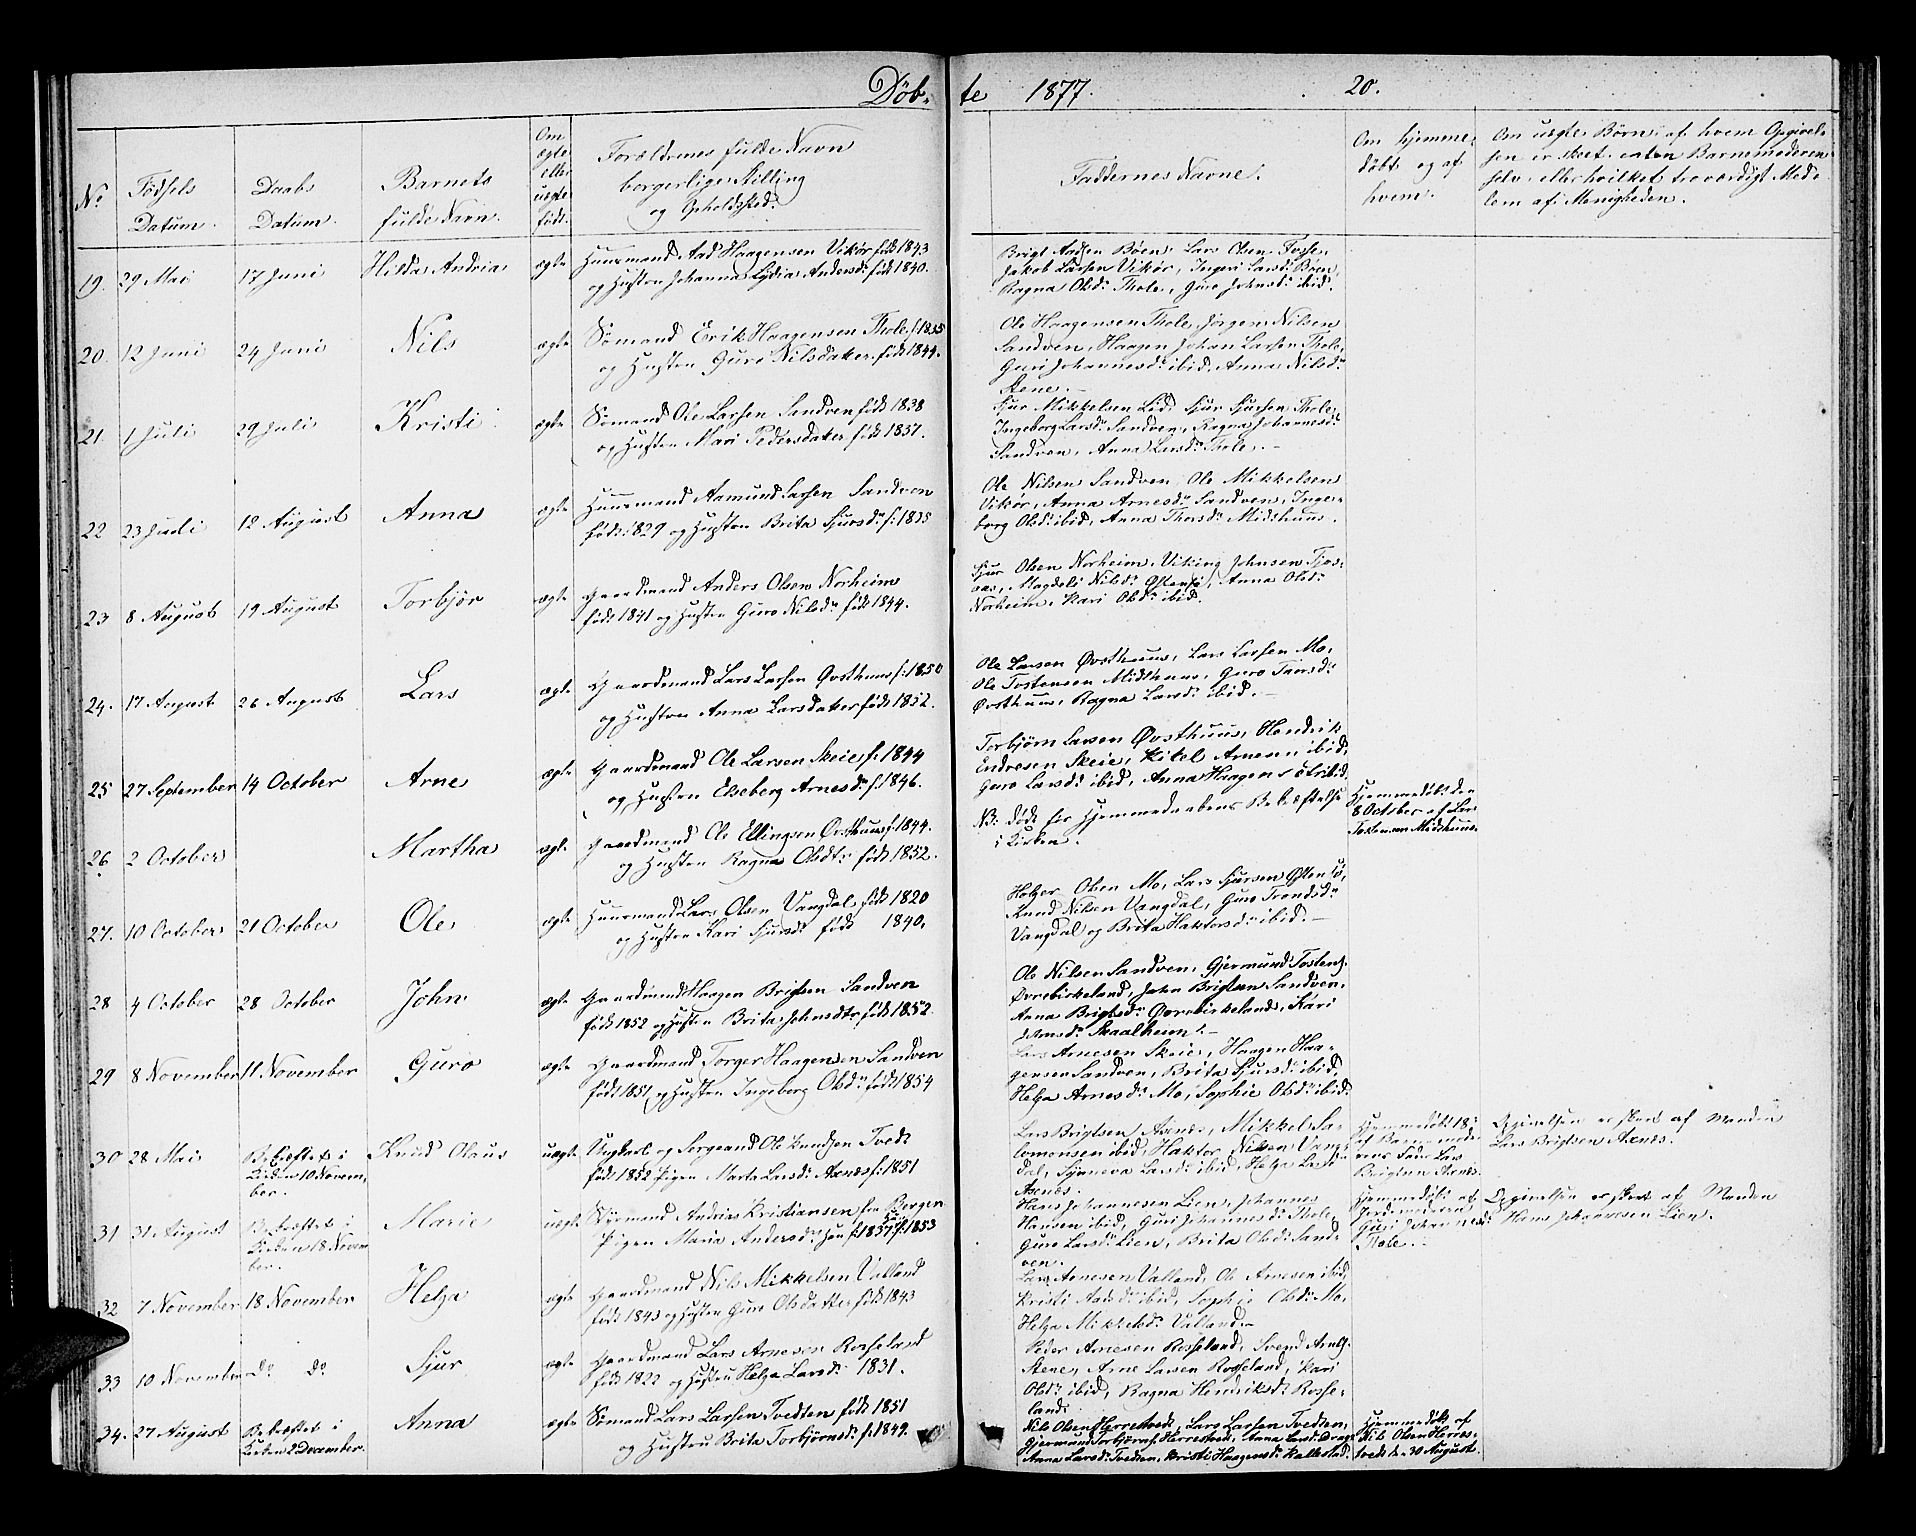 Döb- te 1877. 20.
No
Födsels Datum.
Daabs Datum.
Barnets fulde Navn.
Om ægte eller uægte født.
Forældrenes fulde Navn borgerlige Stilling og Opholdssted.
Faddernes Navne.
Om hjemmedøbt og af hvem.
Om uægte Børn: af hvem Opgivelsen er skeet enten Barnemoderen selv, eller hvilket troværdigt Medlem af Menigheden.
19. 29 Mai 17 Juni Hilda Andria ægte
Huusmand Aad Haagensen Vikør født 1843
og Hustru Johanna Lydia Andersd: født 1840.
Brigt Aadsen Bøen, Lars Olsen Fosse,
Jakob Larsen Vikør, Ingeri Larsd: Bøen,
Ragna Olsd: Thole, Guro Johnsd: ibid.
20. 12 Juni 24 Juni Nils ægte
Sømand Erik Haagensen Thole f: 1835
og Hustru Guro Nilsdatter født 1844.
Ole Haagensen Thole, Jørgen Nilsen
Sandven, Haagen Johan Larsen Thole,
Guri Johannesd: ibid, Anna Nilsd:
Stene.
21 1 Juli 29 Juli Kristi ægte
Sømand Ole Larsen Sandven født 1838
og Hustru Mari Pedersdatter født 1857.
Sjur Mikkelsen Lid, Sjur Sjursen Thole,
Ingeborg Larsd: Sandven, Ragna Johannesd:
Sandven, Anna Larsd: Thole.
22 23 Juli 12 August Anna ægte
Huusmand Aamund Larsen Sandven
født 1829 og Hustru Brita Sjursd: f: 1835
Ole Nilsen Sandven, Ole Mikkelsen
Vikør, Anna Arnesd: Sandven, Inge-
borg Olsd: ibid, Anna Thorsd: Midthuus.
23 8 August 19 August Torbjør ægte
Gaardmand Anders Olsen Norheim
født 1841 og Hustru Guro Nilsd: født 1844.
Sjur Olsen Norheim, Viking Johnsen
Magdeli Nilsd: Østensø, Anna Olsd:
Norheim, Kari Olsd: ibid.
24. 17 August 26 August Lars ægte
Gaardmand Lars Larsen Øvsthuus f: 1850
og Hustru Anna Larsdatter født 1852.
Ole Larsen Øvsthuus, Lars Larsen Mo,
Ole Tostensen Midthuus, Guro Larsd:
Øvsthuus, Ragna Larsd: ibid.
25 27 September 14 October Arne ægte
Gaardmand Ole Larsen Skeie f: 1844
og Hustru Elseberg Arnesd: f: 1846.
Torbjørn Larsen Øvsthuus, Hendrik
Endresen Skeie, Kitel Arnesen ibid,
Guro Larsd: ibid, Anna Haagensdtr ibid.
26. 2 October Martha ægte
Gaardmand Ole Ellingsen Øvsthuus f: 1844.
og Hustru Ragna Olsdtr født 1852.
NB: døde før Hjemmedaabens Bekræftelse
i Kirken.
Hjemmedøbt den
8 October af Lars
Tostensen Midthuus.
27. 10 October 21 October Ole ægte
Huusmand Lars Olsen Vangdal født 1820
og Hustru Kari Sjursd: født 1840.
Holger Olsen Mo, Lars Sjursen Østensø,
Knud Nilsen Vangdal, Guro Trondsd:
Vangdal og Brita Haktorsd: ibid.
28 4 October 28 October John ægte
Gaardmand Haagen Brigtsen Sandven
født 1852 og Hustru Brita Johnsdtr født 1852.
Ole Nilsen Sandven, Gjermund Tostens.
Øvrebirkeland, John Brigtsen Sandven,
Anna Brigtsd: Øvrebirkeland, Kari
Skaalheim.
29 8 November 11 November Guro ægte
Gaardmand Torger Haagensen Sandven
født 1851 og Hustru Ingeborg Olsd: født 1854
Lars Arnesen Skeie, Haagen Haa-
gensen Sandven, Brita Sjursd: ibid,
Helga Arnesd: Mo, Sophie Olsd: ibid.
30 28 Mai Bekræftet i Kirken 10 Novem-
ber. Knud Olaus uægte
Ungkarl og Sergeand Ole Knudsen Tvedt
født 1852 Pigen Marta Larsd: Axnæs f: 1851
Lars Brigtsen Axnæs, Mikkel Sa-
lomonsen ibid, Haktor Nilsen Vang-
dal, Synneva Larsd: ibid, Helga Larsd:
Axnes.
Hjemmedøbt
af Barnemode-
rens Fader Lars
Brigtsen Axnes.
Opgivelsen er skeet af Manden
Lars Brigtsen Axnes.
31 31 August Bekræftet i
Kirken 18 Novem-
ber. Marie uægte
Styrmand Andrias Kristiansen fra Bergen
Pigen Maria Andersd: han f: 1857 f: 1853
Hans Johannesen Lien, Johannes
Hansen ibid, Guri Johannesd: Thole,
Guro Larsd: Lien, Brita Olsd: Sand-
ven.
Hjemmedøbt af
Jordmoderen
Guri Johannesd:
Thole.
Opgivelsen er skeet af Manden
Hans Johannesen Lien.
32 7 November 18 November Helga ægte
Gaardmand Nils Mikkelsen Valland
født 1843 og Hustru Guro Olsdatter født 1843
Lars Arnesen Valland, Ole Arnesen ibid,
Kristi Aadsd: ibid, Sophie Olsd: Mo,
Helga Mikkelsd: Valland.
33 10 November Do Do Sjur ægte
Gaardmand Lars Arnesen Rosseland
født 1822 og Hustru Helga Larsd: 1831.
Peder Arnesen Rosseland, Svend Arnes.
Stene, Arne Larsen Rosseland, Kari
Olsd: ibid, Ragna Hendriksd: Rosse-
land.
34. 27 August Bekræftet i
Kirken 2 December. Anna ægte
Sømand Lars Larsen Tvedten født 1851
og Hustru Brita Torbjørnsd: f: 1849.
Nils Olsen Herrestvedt, Lars Larsen Tvedten,
Gjermund Torbjørns. Herrestvedt, Anna Larsd:
Anna Larsd: Tvedten, Kristi Haagensd: Kallestad.
Hjemmedøbt af
Nils Olsen Herres-
tvedt den 30 August.